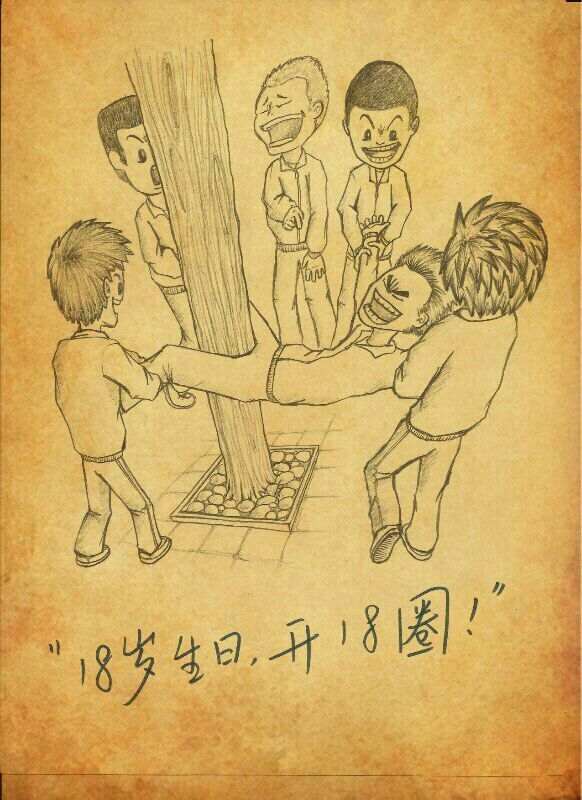 "18岁生日,开18圈!"